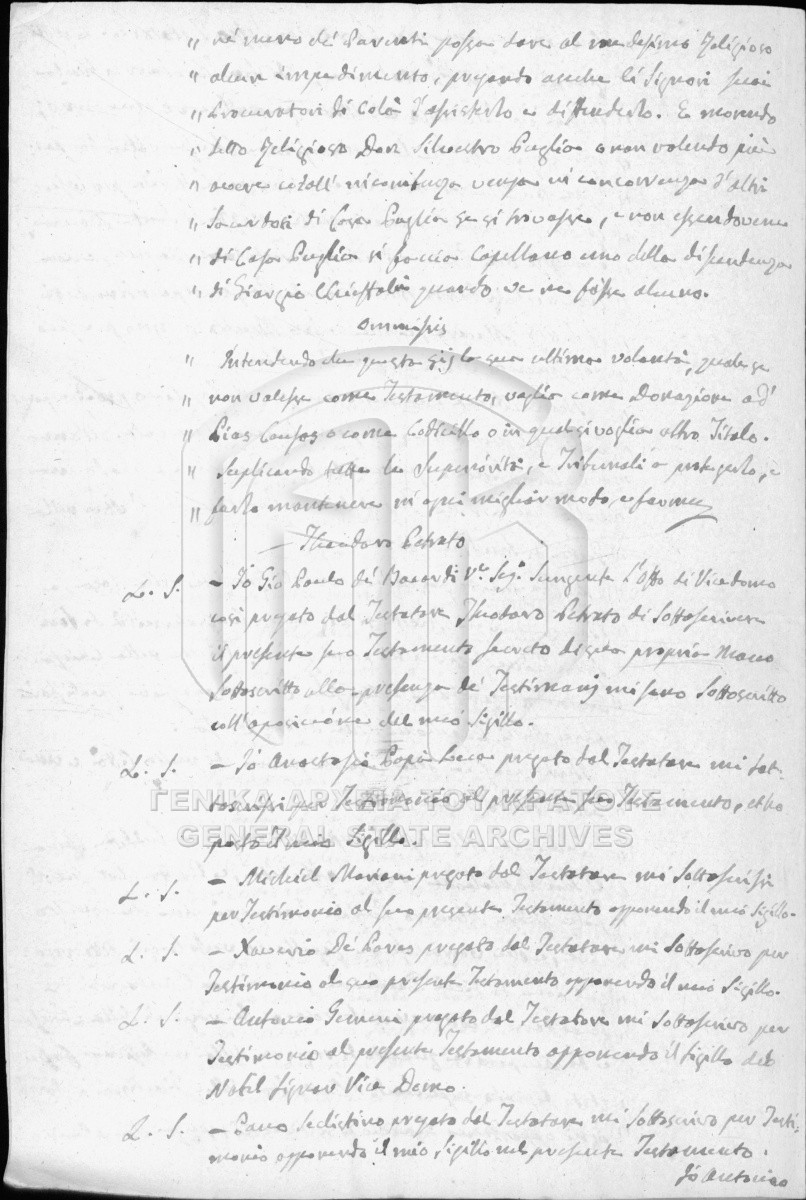 " nè meno de' Parenti possa dare al medesimo Religioso
" alcun impedimento, pregando anche li Signori suoi
" Procuratori di Colà d'assisterlo e diffenderlo. E morendo
" detto Religioso Don Silvestro Puglia o non volendo più
" avere venga in concorrenza d'altri
" Sacerdoti di Casa Puglia se si trovasse, e non essendovene
" di Casa Puglia si faccia Capellano uno della discendenza
" di Giorgio quando ve ne fosse alcuno.
Ommissis
" Intendendo che questa sij la sua ultima volontà, quale se
" non valesse come Testamento, vaglia come Donazione ad
" Pias Causas o come Codicillo o in qual si voglia altro Titolo.
" Suplicando tutte le Superiorità, e Tribunali a protegerlo, e
" farlo mantenere in ogni miglior modo, e forma
— Theodoro Petrato
L. S. – Io Gio Paulo de' V.e Seg.o Sungente l'Offo di Vicedomo
così pregato dal Testatore Theodoro Petrato di Sottoscrivere
il presente suo Testamento secreto di sua propria Mano
Sottoscritto alla presenza de' Testimonij mi sono Sottoscritto
coll'aposicióne del mio Sigillo.
L. S. – Io Anastasio Papa pregato dal Testatore mi sot-
toscrissi per Testimonio al presente suo Testamento, et ho
posto il mio Sigillo.
L. S. – Michiel Mariani pregato dal Testatore mi Sottoscrissi
per Testimonio al suo presente Testamento apponendo il mio Sigillo.
L. S. – Xaverio De pregato dal Testatore mi Sottoscrivo per
Testimonio al suo presente Testamento apponendo il mio Sigillo.
L. S. – Antonio pregato dal Testatore mi Sottoscrivo per
Testimonio al presente Testamento apponendo il Sigillo del
Nobil Signor Vice Domo.
L. S. – pregato dal Testatore mi Sottoscrivo per Testi-
monio apponendo il mio Sigillo nel presente Testamento.
Io Antonio
ΓΕΝΙΚΑ ΑΡΧΕΙΑ ΤΟΥ ΚΡΑΤΟΥΣ
GENERAL STATE ARCHIVES